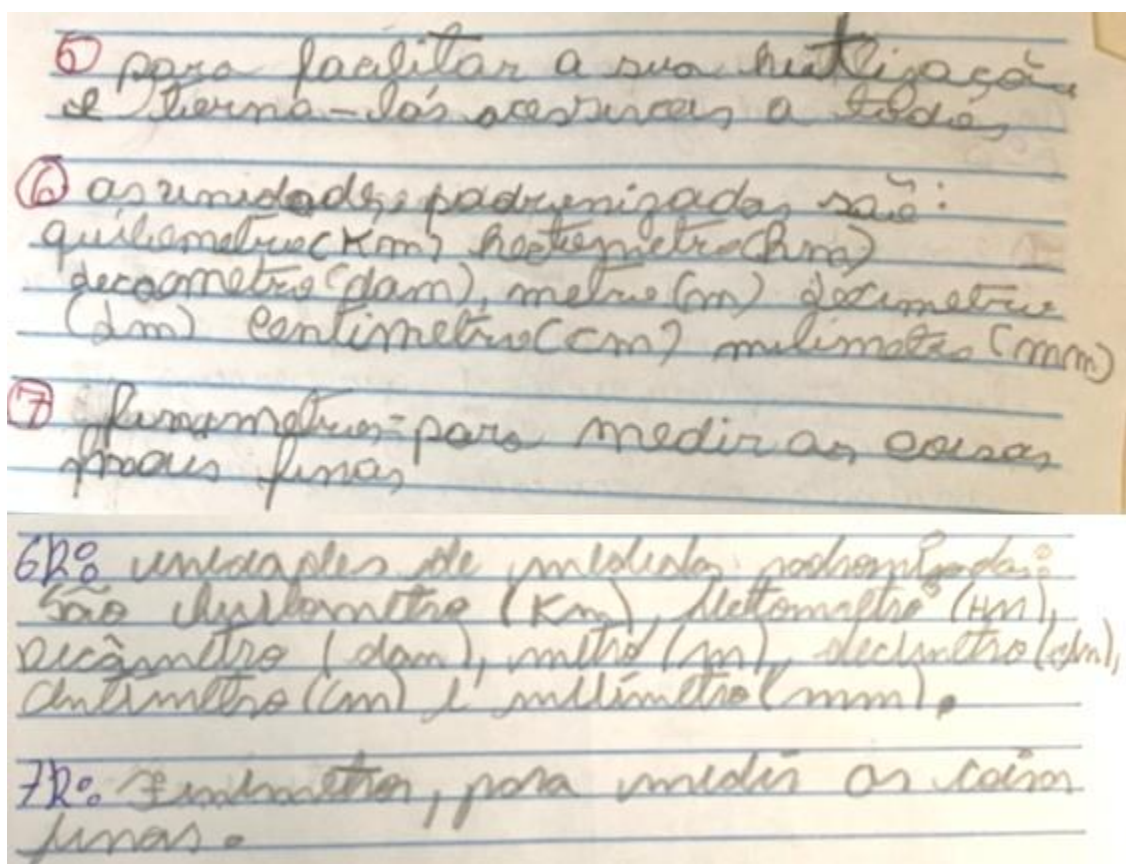 5 para facilitar a sua hutlização
e torna-lós acessiveis a todos
6 as unidades padronizadas são:
quilometro(Km) hectometro(hm)
decametro(dam), metro(m) decimetro
(dm) centimetro(cm) milimetro(mm)
7 para medir as coisas
mais finas
6R: unidades de medidas padronizadas:
São (Km), (HM),
decâmetro (dam), metro (m), decimetro(dm),
centimetro (cm) e milímetro(mm).
7R: para medir as coisas
finas.